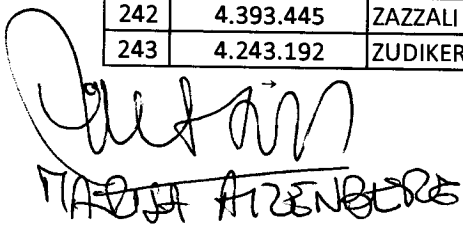 242 4.393.445 ZAZZALI
243 4.243.192 ZUDIKER
MARISA AIZENBERG